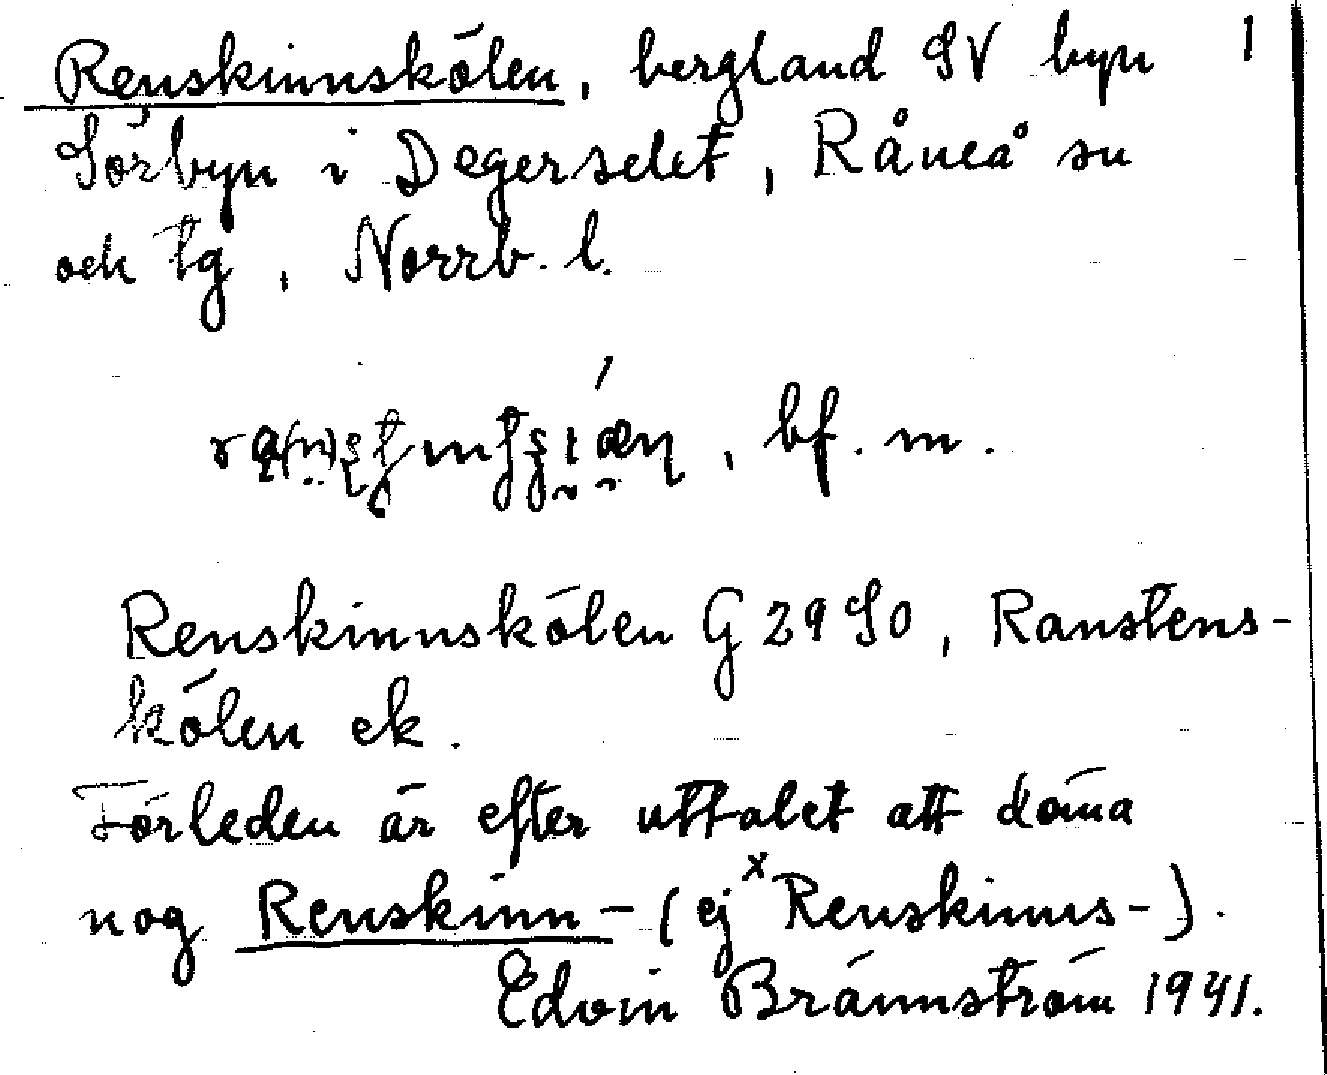 Renskinnskölen, bergland SV byn 1
Sörbyn i Degerselet, Råneå sn
och tg, Norrb. l.
, bf. m.
Renskinnskölen G 29 SO, Ranstens-
kölen ek.
Förleden är efter uttalet att döma
nog Renskinn- (ej ˣRenskinns-).
Edvin Brännström 1941.